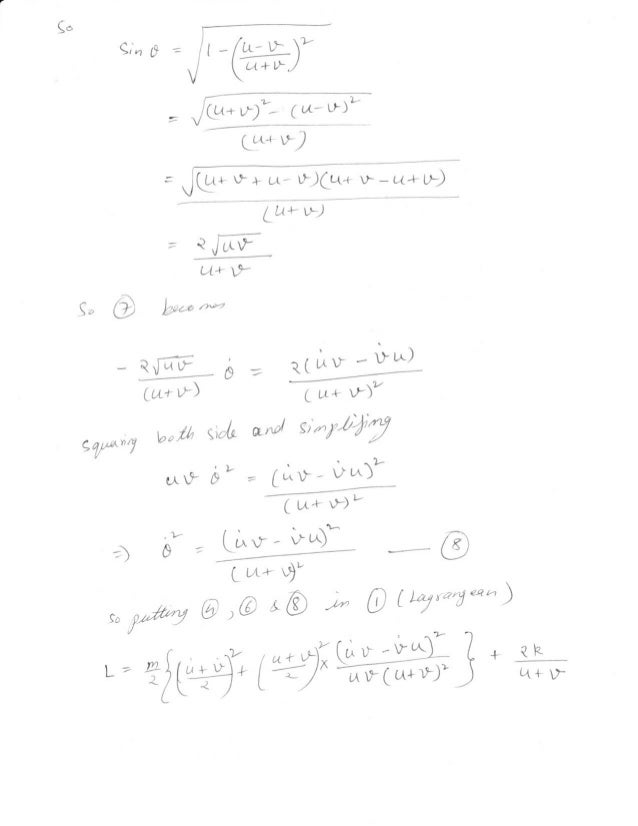 So
Sin θ = √(1 - ((u-v)/(u+v))²)
= √((u+v)² - (u-v)²) / (u+v)
= √((u+v+u-v)(u+v-u+v)) / (u+v)
= 2√(uv) / (u+v)
So ⑦ becomes
- 2√(uv)/(u+v) θ̇ = 2(u̇v - v̇u)/(u+v)²
squaring both side and simplifing
uv θ̇² = (u̇v - v̇u)²/(u+v)²
=> θ̇² = (u̇v - v̇u)²/(u+v)² — ⑧
so putting ④, ⑥ & ⑧ in ① (Lagrangean)
L = m/2 {((u̇+v̇)/2)² + ((u+v)/2)² × (u̇v - v̇u)²/(uv(u+v)²)} + 2k/(u+v)